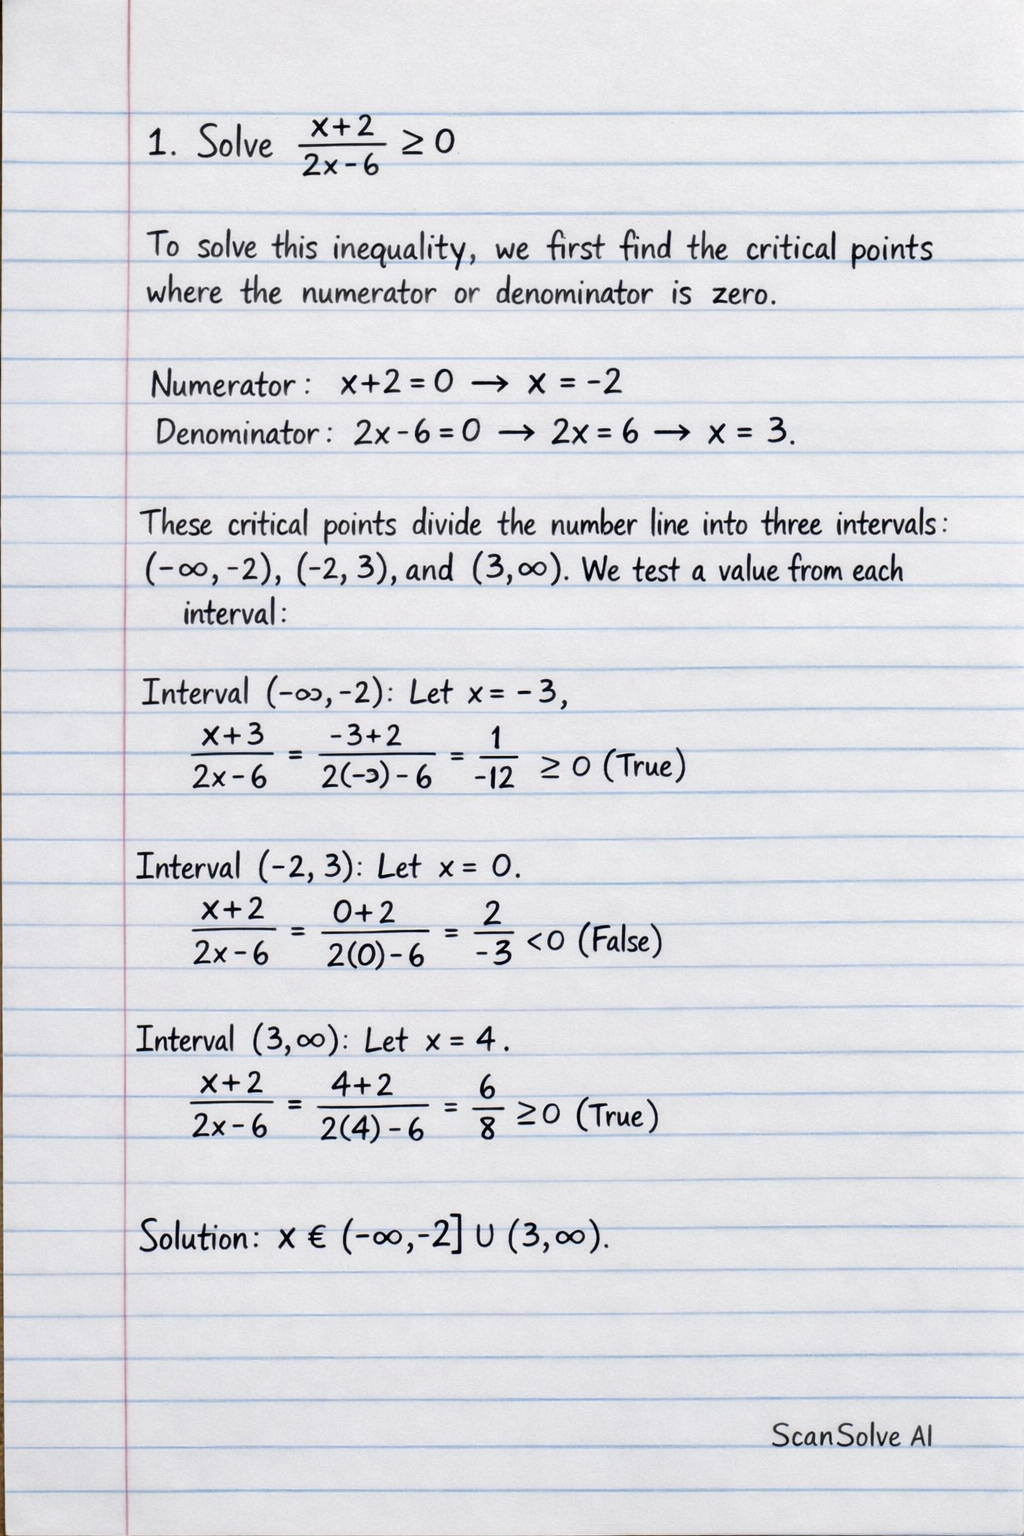 1. Solve (x+2)/(2x-6) ≥ 0
To solve this inequality, we first find the critical points
where the numerator or denominator is zero.
Numerator: x+2=0 → x = -2
Denominator: 2x-6=0 → 2x=6 → x = 3.
These critical points divide the number line into three intervals:
(-∞,-2), (-2, 3), and (3,∞). We test a value from each
interval:
Interval (-∞,-2): Let x = -3,
(x+3)/(2x-6) = (-3+2)/(2(-3)-6) = 1/-12 ≥ 0 (True)
Interval (-2, 3): Let x = 0.
(x+2)/(2x-6) = (0+2)/(2(0)-6) = 2/-3 <0 (False)
Interval (3,∞): Let x = 4.
(x+2)/(2x-6) = (4+2)/(2(4)-6) = 6/8 ≥0 (True)
Solution: x € (-∞,-2] U (3,∞).
ScanSolve AI